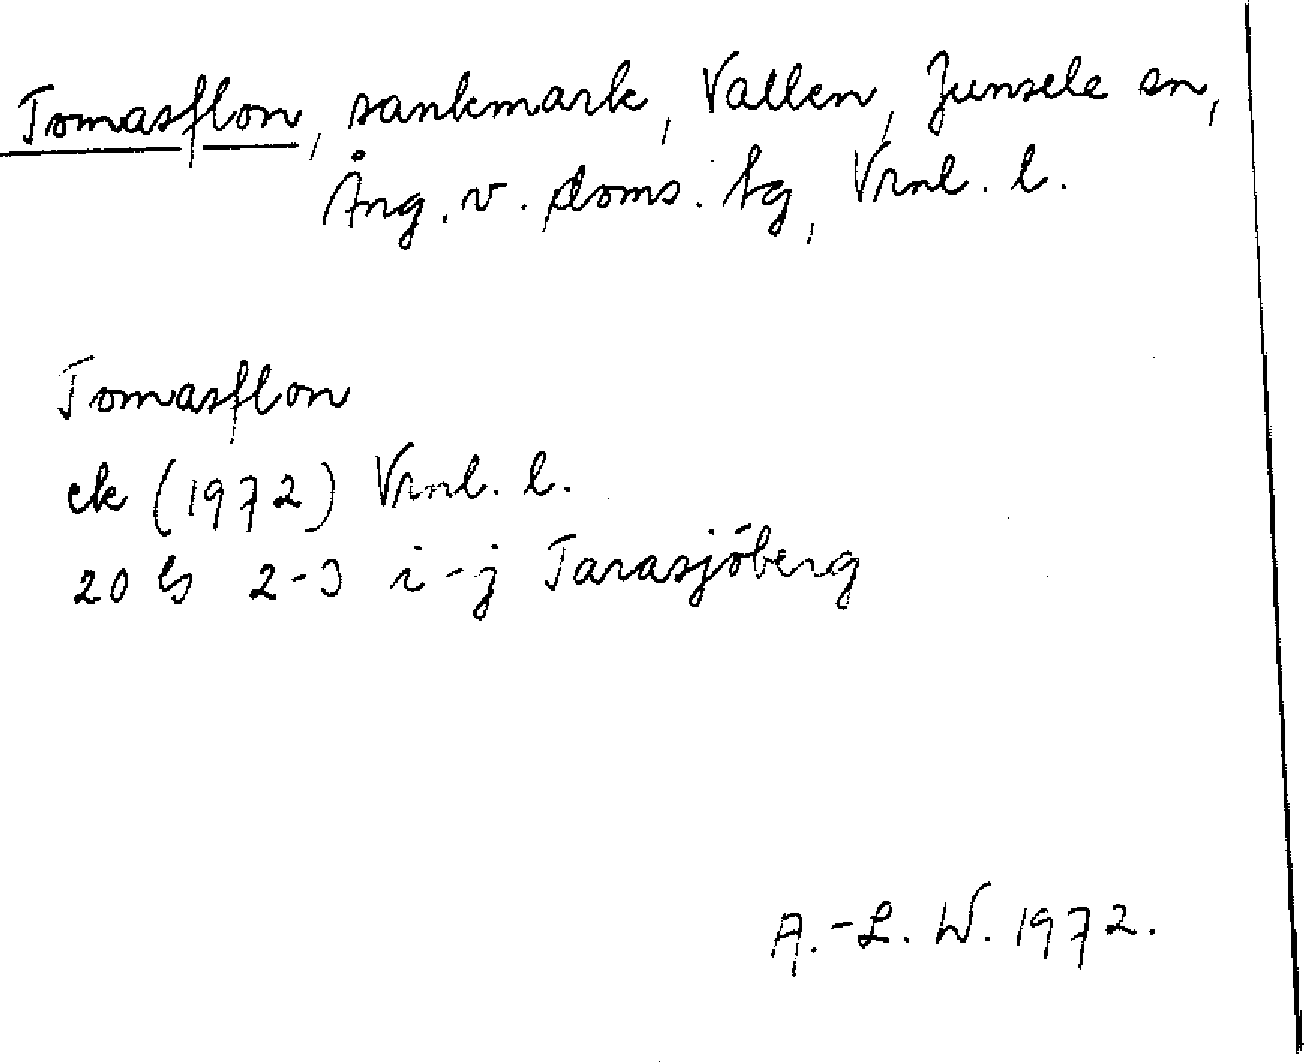 Tomasflon, sankmark, Vallen, Junsele sn,
Ång. v. doms. tg, Vrnl. l.
Tomasflon
ek (1972) Vrnl. l.
20 G 2-3 i-j Tarasjöberg
A.-L. W. 1972.